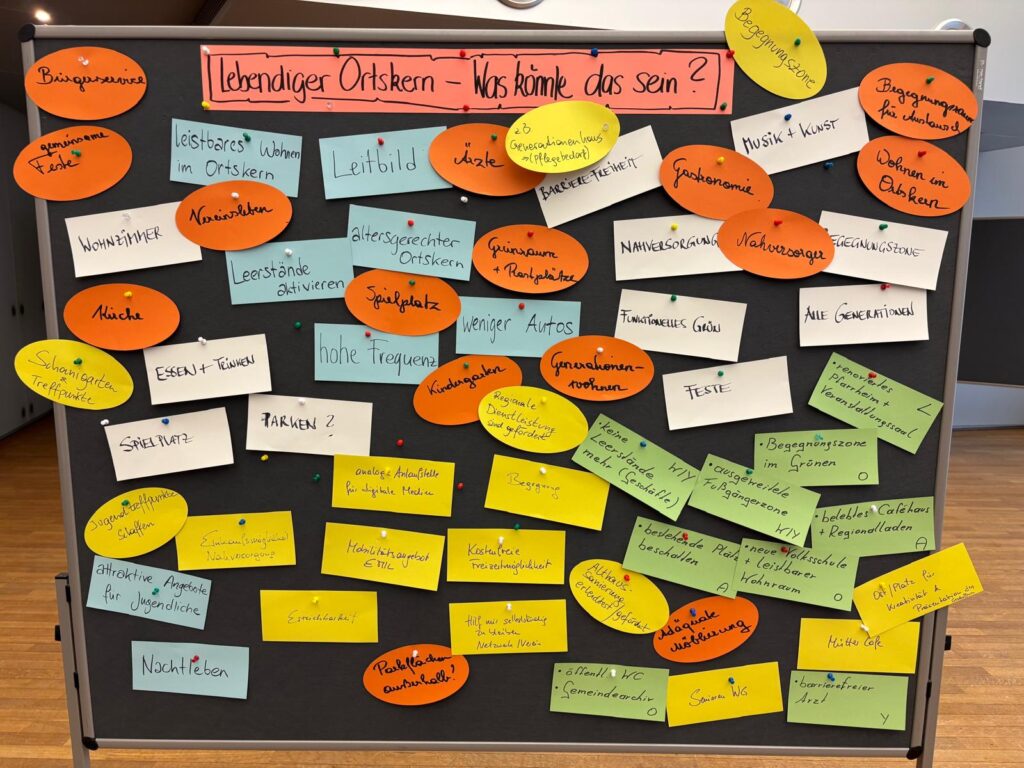 Lebendiger Ortskern – Was könnte das sein?
Begegnungszone
Bürgerservice
gemeinsame
Feste
leistbares Wohnen
im Ortskern
Leitbild
Ärzte
z.B.
Generationenhaus
(Pflegebedarf)
BARRIERE-FREIHEIT
MUSIK + KUNST
Begegnungsraum
für Austausch
Gastronomie
Wohnen im
Ortskern
WOHNZIMMER
Vereinsleben
Leerstände
aktivieren
altersgerechter
Ortskern
Grünraum
+ Rastplätze
NAHVERSORGUNG
Nahversorger
BEGEGNUNGSZONE
Küche
Spielplatz
weniger Autos
FUNKTIONELLES GRÜN
ALLE GENERATIONEN
Schanigarten
+
Treffpunkte
ESSEN + TRINKEN
hohe Frequenz
Kindergarten
Generationen-
wohnen
FESTE
• renoviertes
Pfarrheim +
Veranstaltungssaal
L
SPIELPLATZ
PARKEN?
Regionale
Dienstleistung
sind gefördert
• keine
Leerstände
mehr (Geschäfte)
W/Y
• Begegnungszone
im Grünen
O
• ausgeweitete
Fußgängerzone
W/Y
analoge Anlaufstelle
für digitale Medien
Begegnung
Jugendtreffpunkte
schaffen
Einkaufsmöglichkeit
Nahversorgung
Mobilitätsangebot
Kostenfreie
Freizeitmöglichkeit
bestehende Plätze
beschatten
A
• belebtes Caféhaus
+ Regionalladen
A
• neue Volksschule
+ leistbarer
Wohnraum
O
attraktive Angebote
für Jugendliche
Erreichbarkeit
Hilf mir selbständig
zu bleiben
Netzwerk/Verein
Althaus-
sanierung
erleichtert/gefördert
Adäquate
Möblierung
Ort/Platz für
Kreativität &
Präsentation
Mütter Cafe
Nachtleben
Parkflächen
außerhalb?
• öffentl. WC
• Gemeindearchiv
O
Senioren WG
• barrierefreier
Arzt
Y